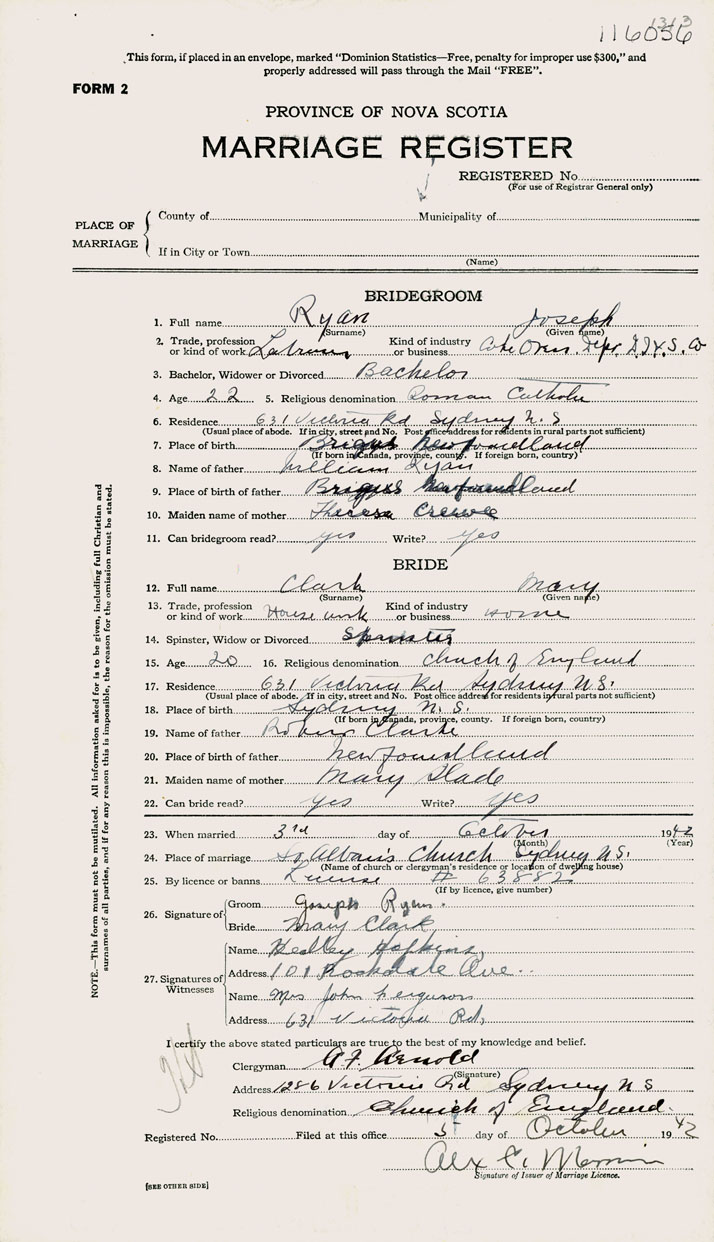 116056
1313
This form, if placed in an envelope, marked "Dominion Statistics—Free, penalty for improper use $300," and
properly addressed will pass through the Mail "FREE".
FORM 2
PROVINCE OF NOVA SCOTIA
MARRIAGE REGISTER
REGISTERED No.
(For use of Registrar General only)
PLACE OF MARRIAGE
County of Municipality of
If in City or Town
(Name)
BRIDEGROOM
1. Full name Ryan Joseph
(Surname) (Given name)
2. Trade, profession or kind of work Labourer Kind of industry or business Coke Ovens. Dept. D.I.&S. Co
3. Bachelor, Widower or Divorced Bachelor
4. Age 22 5. Religious denomination Roman Catholic
6. Residence 631 Victoria Rd Sydney N.S
(Usual place of abode. If in city, street and No. Post office address for residents in rural parts not sufficient)
7. Place of birth Briggs Newfoundland
(If born in Canada, province, county. If foreign born, country)
8. Name of father William Ryan
9. Place of birth of father Briggs Newfoundland
10. Maiden name of mother Theresa Crewe
11. Can bridegroom read? yes Write? yes
BRIDE
12. Full name Clark Mary
(Surname) (Given name)
13. Trade, profession or kind of work House work Kind of industry or business Home
14. Spinster, Widow or Divorced Spinster
15. Age 20 16. Religious denomination Church of England
17. Residence 631 Victoria Rd Sydney N.S.
(Usual place of abode. If in city, street and No. Post office address for residents in rural parts not sufficient)
18. Place of birth Sydney N.S.
(If born in Canada, province, county. If foreign born, country)
19. Name of father Clarke
20. Place of birth of father Newfoundland
21. Maiden name of mother Mary Slade
22. Can bride read? yes Write? yes
23. When married 3rd day of October 1942
(Month) (Year)
24. Place of marriage St Alban's Church Sydney N.S.
(Name of church or clergyman's residence or location of dwelling house)
25. By licence or banns License # 63882
(If by licence, give number)
26. Signature of
Groom Joseph Ryan.
Bride Mary Clark
27. Signatures of Witnesses
Name Hedley Hopkins
Address 101 Rockdale Ave.
Name Mrs John Ferguson
Address 631 Victoria Rd,
I certify the above stated particulars are true to the best of my knowledge and belief.
Clergyman A.F. Arnold
(Signature)
Address 1286 Victoria Rd Sydney N S
Religious denomination Church of England.
Registered No. Filed at this office 5 day of October 1942
Alex C.
Signature of Issuer of Marriage Licence.
[SEE OTHER SIDE]
NOTE.—This form must not be mutilated. All information asked for is to be given, including full Christian and
surnames of all parties, and if for any reason this is impossible, the reason for the omission must be stated.